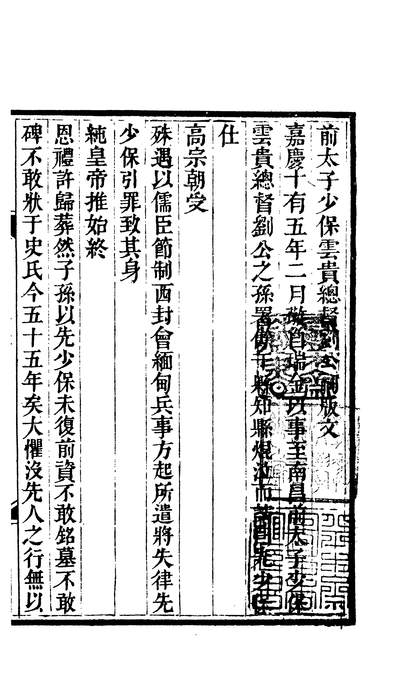 前太子少保雲貴總督劉公祠版文
嘉慶十有五年二月敬自瑞金以事至南昌前太子少保
雲貴總督劉公之孫署知縣焜泣而曰先少保
仕
高宗朝受
殊遇以儒臣節制西封會緬甸兵事方起所遣將失律先
少保引罪致其身
純皇帝推始終
恩禮許歸葬然子孫以先少保未復前資不敢銘墓不敢
碑不敢狀于史氏今五十五年矣大懼沒先人之行無以